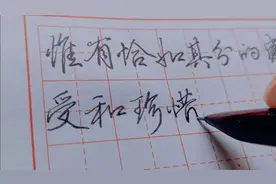 惟有恰如其分的
受和珍惜